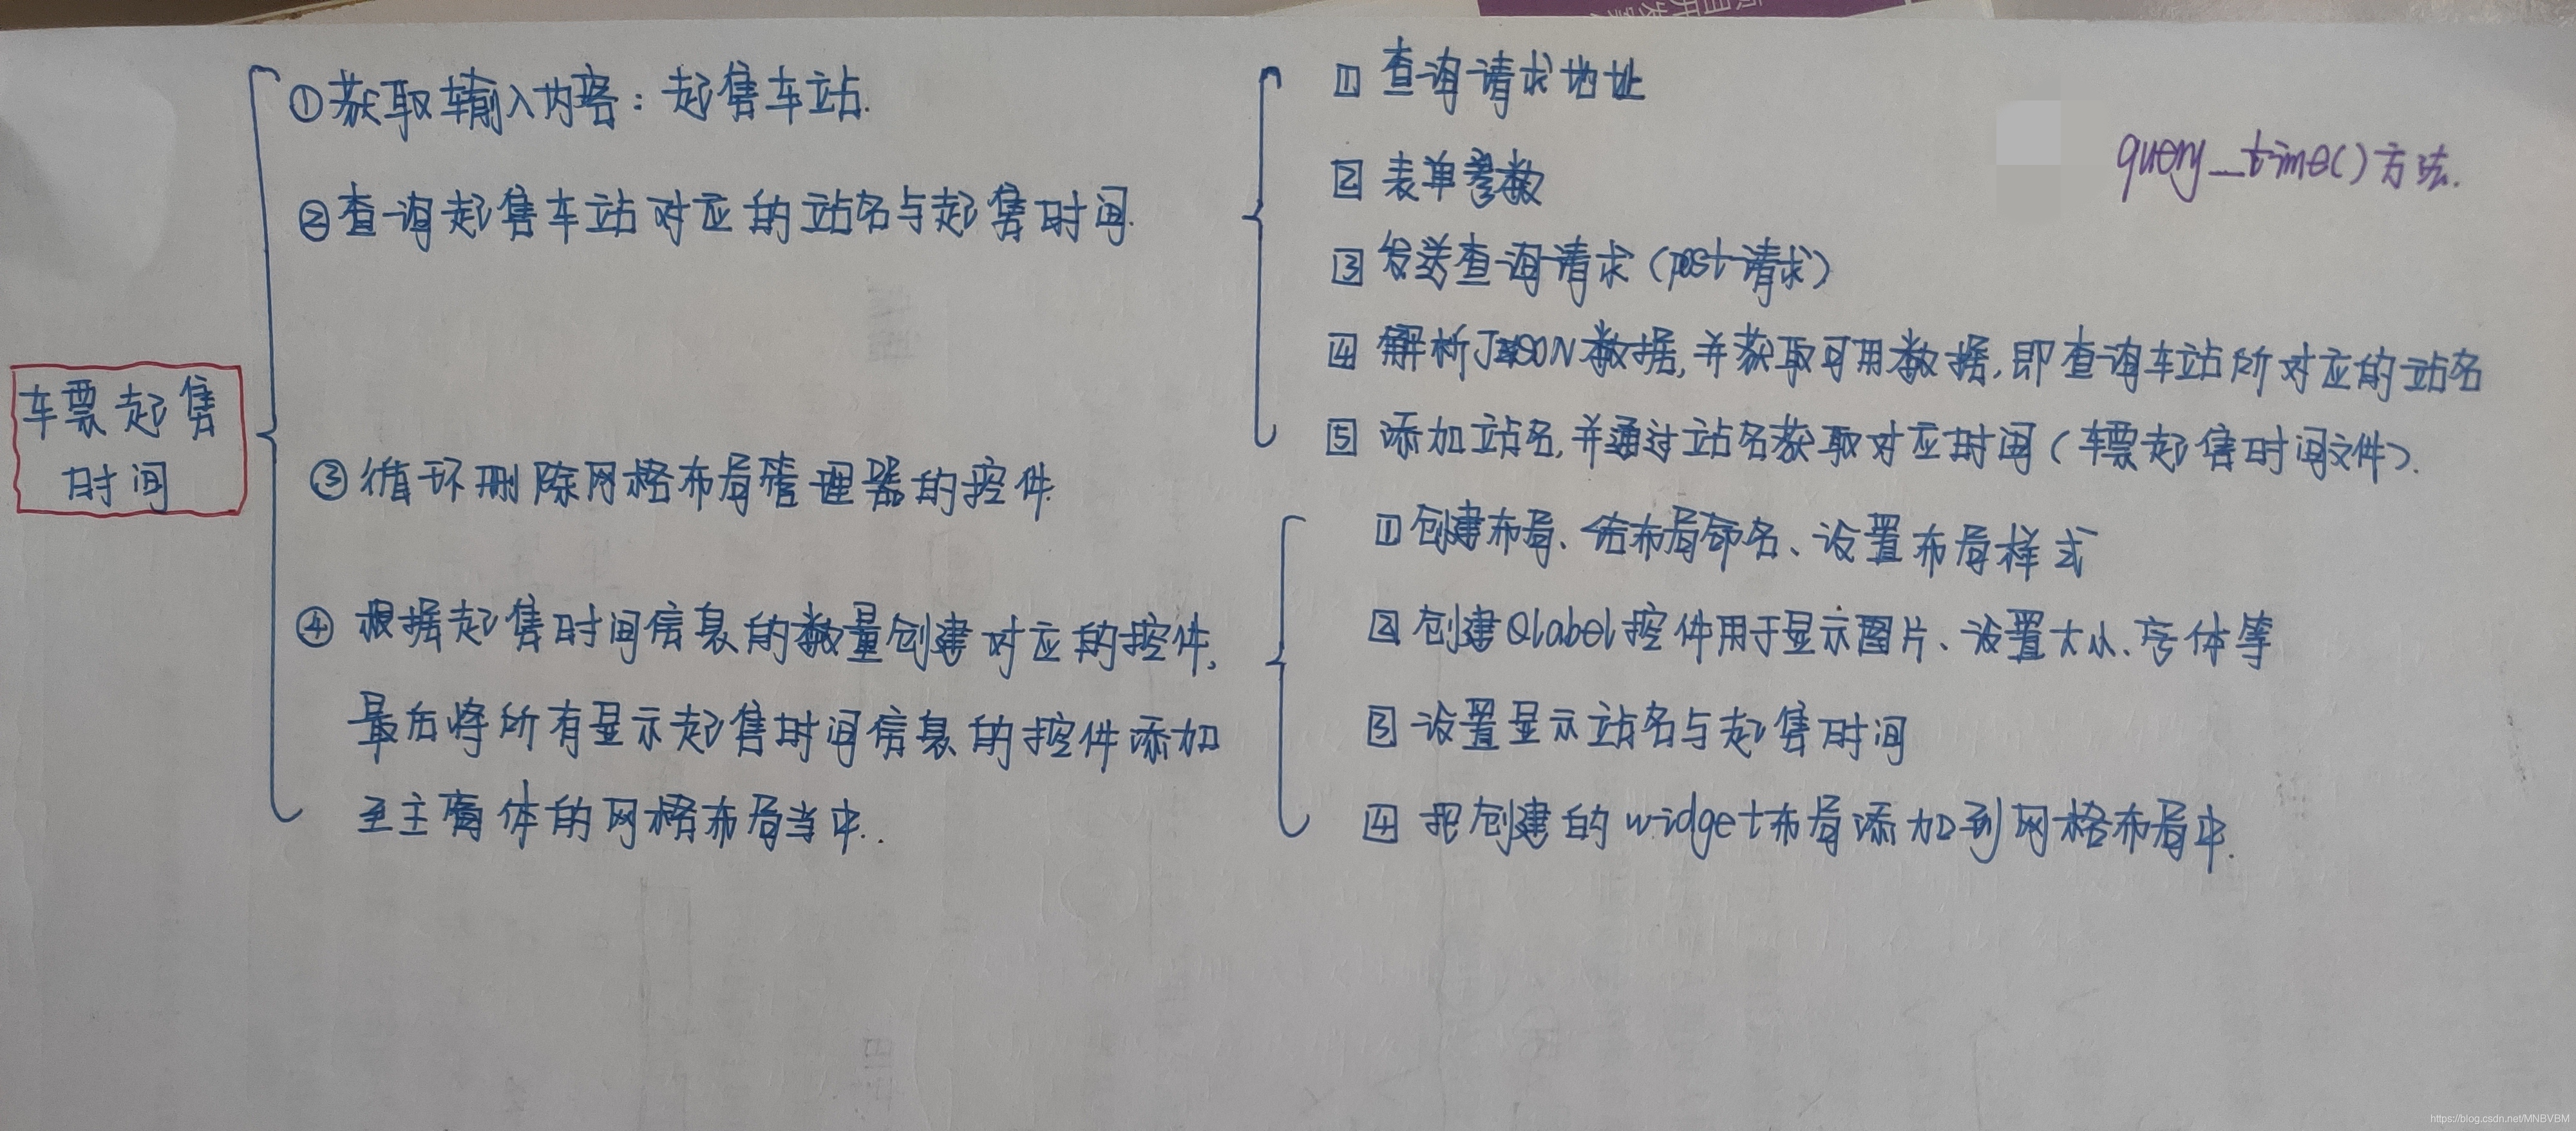 车票起售
时间
①获取输入内容：起售车站.
②查询起售车站对应的站名与起售时间.
③循环删除网格布局管理器的控件.
④根据起售时间信息的数量创建对应的控件,
最后将所有显示起售时间信息的控件添加
至主窗体的网格布局当中..
1 查询请求地址
2 表单参数
3 发送查询请求（post请求）
4 解析JSON数据,并获取可用数据,即查询车站所对应的站名
5 添加站名,并通过站名获取对应时间（车票起售时间文件）.
query_time()方法.
1 创建布局、给布局命名、设置布局样式
2 创建Qlabel控件用于显示图片、设置大小、字体等
3 设置显示站名与起售时间
4 把创建的widget布局添加到网格布局中.
https://blog.csdn.net/MNBVBM